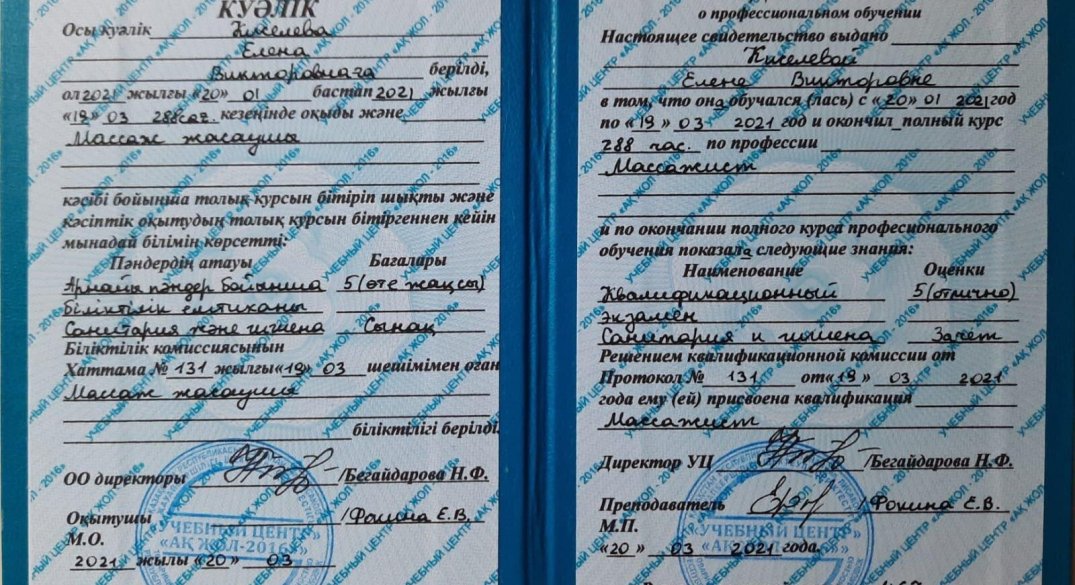 КУӘЛІК
Осы куәлік Киселева
Елена
Викторовнаға берілді,
ол 2021 жылғы «20» 01 бастап 2021 жылғы
«19» 03 288сағ. кезеңінде оқыды және
Массаж жасаушы
кәсібі бойынша толық курсын бітіріп шықты және
кәсіптік оқытудың толық курсын бітіргеннен кейін
мынадай білімін көрсетті:
Пәндердің атауы Бағалары
Арнайы пәндер бойынша 5 (өте жақсы)
біліктілік емтиханы
Санитария және гигиена Сынақ
Біліктілік комиссиясының
Хаттама № 131 жылғы «19» 03 шешімімен оған
Массаж жасаушы
біліктілігі берілді.
ОО директоры /Бегайдарова Н.Ф.
Оқытушы /Фокина Е.В.
М.О.
2021 жылы «20» 03
УЧЕБНЫЙ ЦЕНТР
«АҚ ЖОЛ-2016»
о профессиональном обучении
Настоящее свидетельство выдано
Киселевой
Елене Викторовне
в том, что она обучался (лась) с «20» 01 2021 год
по «19» 03 2021 год и окончил полный курс
288 час. по профессии
Массажист
и по окончании полного курса професионального
обучения показала следующие знания:
Наименование Оценки
Квалификационный 5 (отлично)
экзамен
Санитария и гигиена Зачет
Решением квалификационной комиссии от
Протокол № 131 от «19» 03 2021
года ему (ей) присвоена квалификация
Массажист
Директор УЦ /Бегайдарова Н.Ф.
Преподаватель /Фокина Е.В.
М.П.
«20» 03 2021 года.
«УЧЕБНЫЙ ЦЕНТР
«АҚ ЖОЛ-2016»
УЧЕБНЫЙ ЦЕНТР «АҚ ЖОЛ - 2016»